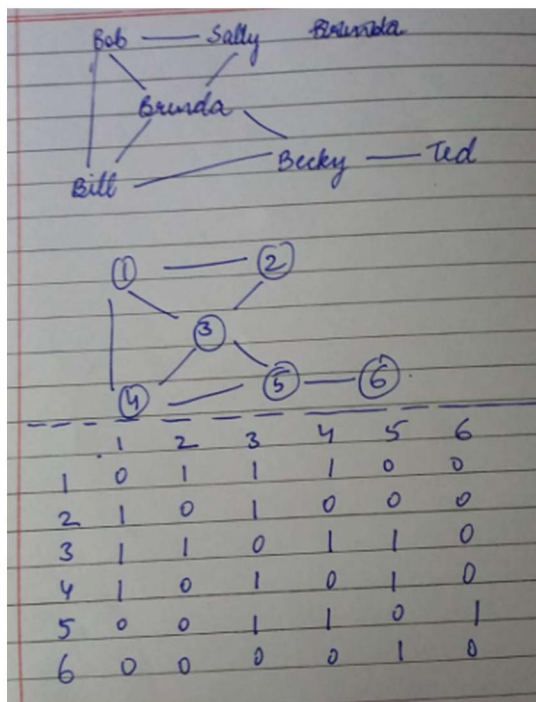 Bob Sally
Brinda
Bill Becky Ted
1 2
3
4 5 6
1 2 3 4 5 6
1 0 1 1 1 0 0
2 1 0 1 0 0 0
3 1 1 0 1 1 0
4 1 0 1 0 1 0
5 0 0 1 1 0 1
6 0 0 0 0 1 0